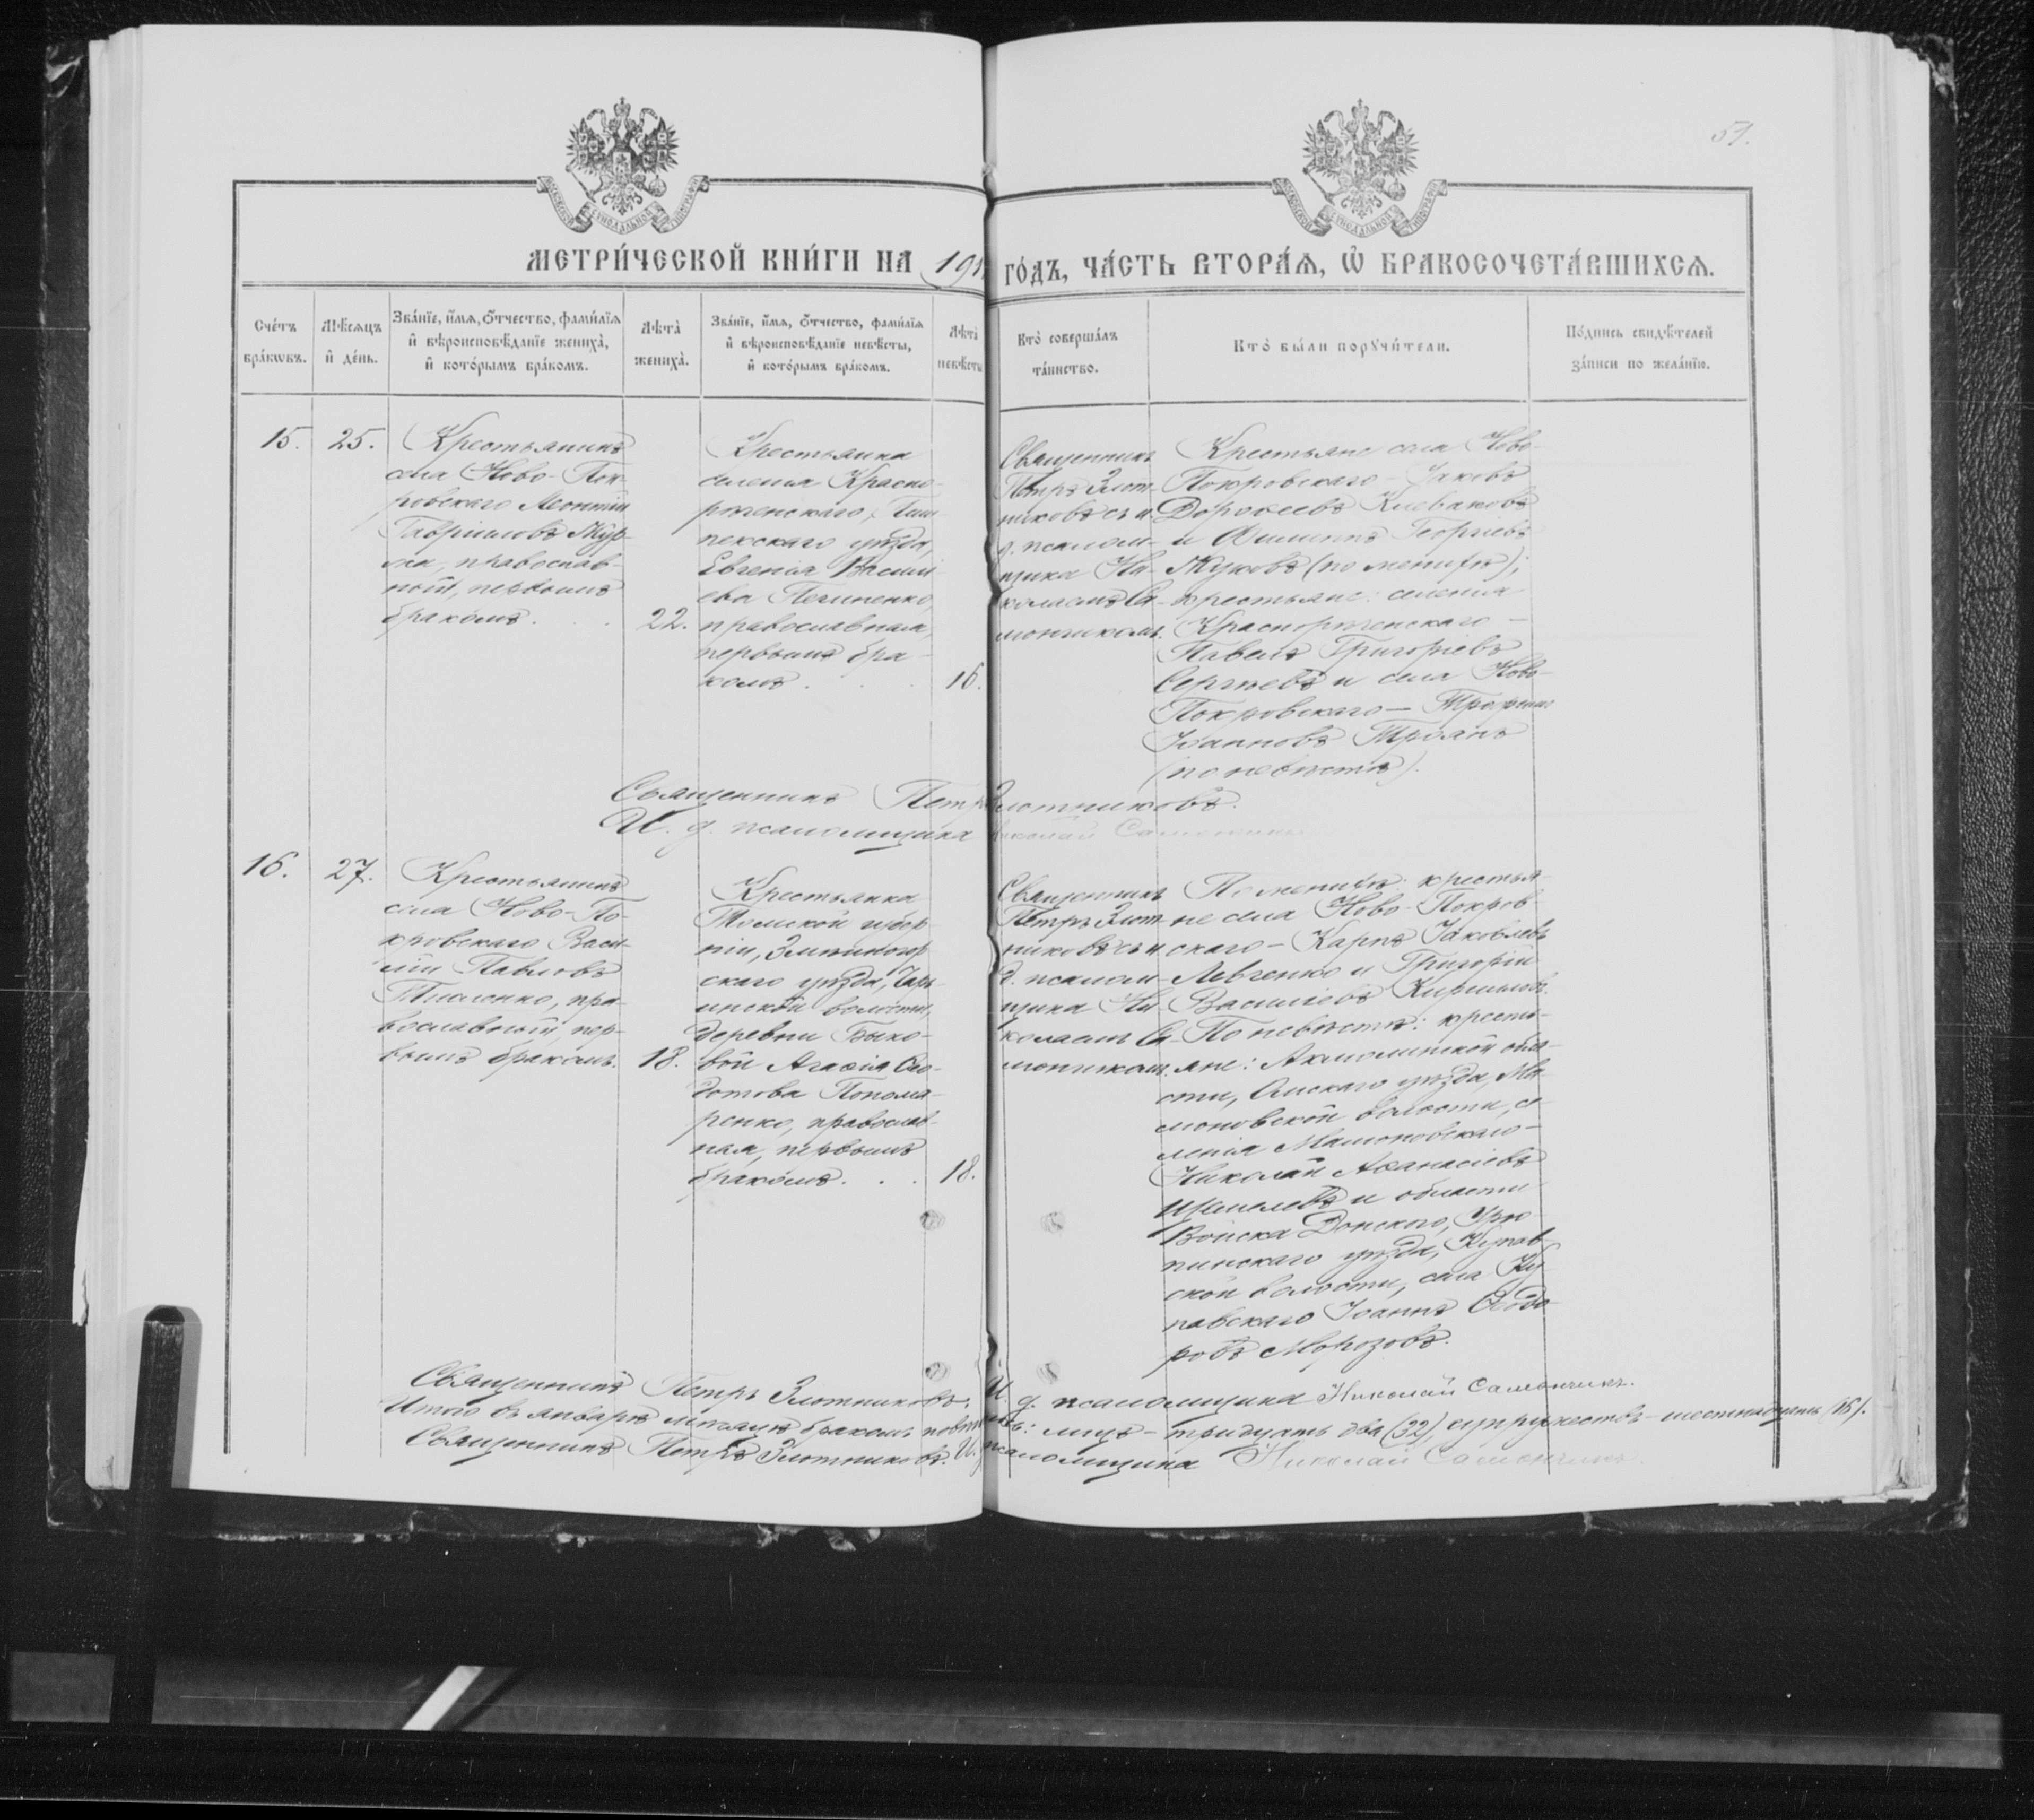 51.
МЕТРИ́ЧЕСКОЙ КНИ́ГИ НА 191 ГО́ДЪ, ЧА́СТЬ ВТОРА́Ѧ, Ѽ БРАКОСОЧЕТА́ВШИХСѦ.
Сче́тъ бра́кѡвъ.
Мѣ́сѧцъ и҆ де́нь.
Зва́нїе, и҆́мѧ, ѻ҆́тчество, фами́лїѧ
и҆ вѣроисповѣ́данїе жениха̀,
и҆ кото́рымъ бра́комъ.
Лѣ́та̀ жениха̀.
Зва́нїе, и҆́мѧ, ѻ҆́тчество, фами́лїѧ
и҆ вѣроисповѣ́данїе невѣ́сты,
и҆ кото́рымъ бра́комъ.
Лѣ́та̀ невѣ́сты
Кто̀ соверша́лъ
та́инство.
Кто̀ бы́ли порꙋчи́тели.
По́дпись свидѣ́телей
за́писи по жела́нїю.
15.
25.
Крестьянинъ
села Ново-Пок-
ровскаго Леонтій
Гавріиловъ Мур-
православ-
ный, первымъ
бракомъ.
22.
Крестьянка
селенія Красно-
рѣченскаго, Пиш-
пекскаго уѣзда,
Евгенія Васил-
ева Печиненко,
православная,
первымъ бра-
комъ.
16.
Священникъ
Петръ Злот-
никовъ съ и.
д. псалом-
щика Ни-
колаемъ Са-
мончикомъ.
Крестьяне села Ново-
Покровскаго - Іаковъ
Дороѳеевъ Клеваковъ
и Филиппъ Георгіевъ
Жуковъ (по женихѣ);
крестьяне: селенія
Краснорѣченскаго -
Павелъ Григоріевъ
Сергѣевъ и села Ново-
Покровскаго - Трофимъ
Іоанновъ Троянъ
(по невѣстѣ).
Священникъ Петръ Злотниковъ.
И. д. псаломщика Николай Самончикъ
16.
27.
Крестьянинъ
села Ново-По-
кровскаго Васи-
лій Павловъ
пра-
вославный, пер-
вымъ бракомъ.
18.
Крестьянка
Томской губер-
ніи, Змѣиногор
скаго уѣзда, Чары-
шской волости,
деревни Быко-
вой Агаѳія Ѳео-
дотова Понома-
ренко, православ-
ная, первымъ
бракомъ.
18.
Священникъ
Петръ Злот-
никовъ съ и
д. псалом-
щика Ни-
колаемъ Са-
мончикомъ.
По женихѣ: крестья-
не села Ново-Покров-
скаго - Карпъ Іаковлевъ
Левченко и Григорій
Василіевъ Кирилловъ.
По невѣстѣ: кресть-
яне: Акмолинской обла-
сти, Омскаго уѣзда, Ма-
моновской волости, се-
ленія Мамоновскаго -
Николай Аѳанасіевъ
Щегелевъ и области
Войска Донского, Урю-
пинскаго уѣзда, Купав-
ской волости, села Ку-
павскаго Іоаннъ Ѳеодо-
ровъ Морозовъ.
Священникъ Петръ Злотниковъ. И. д. псаломщика Николай Самончикъ.
Итого въ январѣ мѣсяцѣ бракомъ повѣнчано: лицъ - тридцать два (32), супружествъ - шестнадцать (16).
Священникъ Петръ Злотниковъ. И. д. псаломщика Николай Самончикъ.